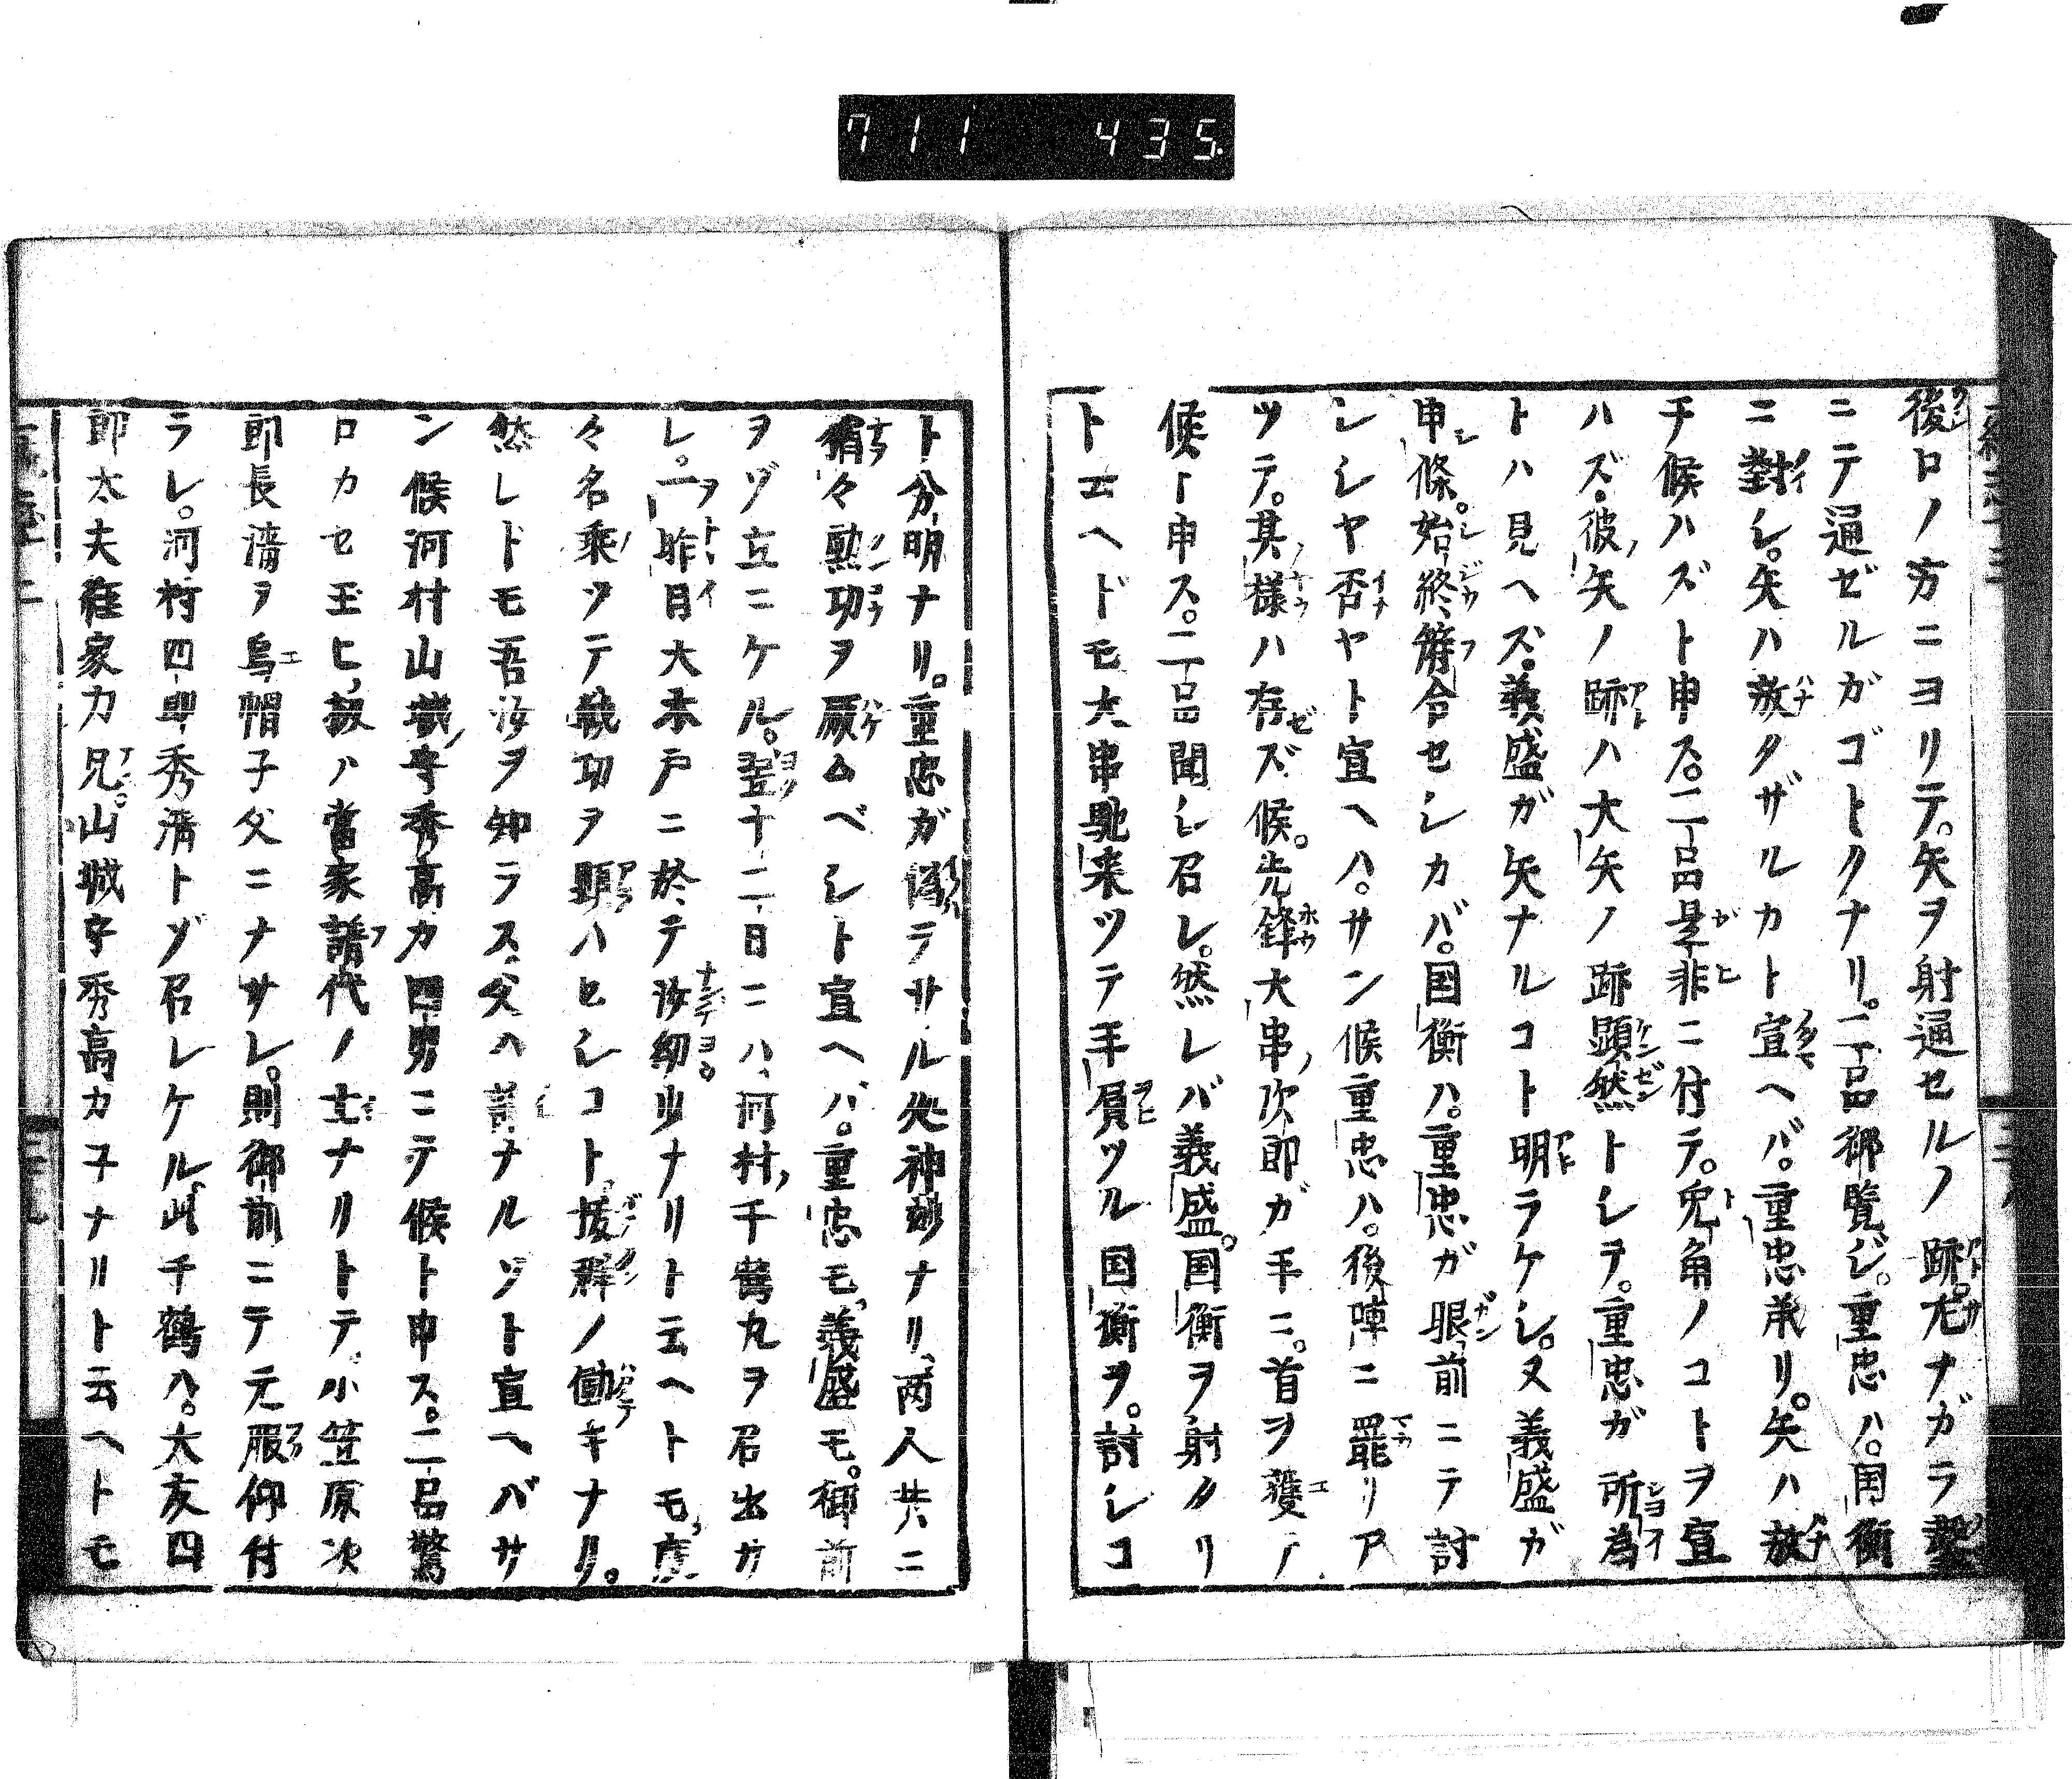 711 435
後ロノ方ニヨリテ。矢ヲ射通セルノ跡。尤ナガラ鑿
ニテ通ゼルガゴトクナリ。二品御覧ジ。重忠ハ。国衡
ニ對シ。矢ハ放タザルカト宣ヘバ。重忠承リ。矢ハ放
チ候ハズト申ス。二品是非ニ付テ。兎角ノコトヲ宣
ハズ。彼矢ノ跡ハ大矢ノ跡顕然トシテ。重忠ガ所為
トハ見ヘズ。義盛ガ矢ナルコト明ラケシ。又義盛ガ
申條。始終符合セシカバ。国衡ハ。重忠ガ眼前ニテ討
シシヤ否ヤト宣ヘハ。サン候重忠ハ。後陣ニ罷リア
ツテ。其様ハ存ズ候。先鋒大串次郎ガ手ニ。首ヲ獲
候ト申ス。二品聞シ召レ。然レバ義盛。国衡ヲ射タリ
ト云ヘドモ大串馳来ツテ手負ツル国衡ヲ。討シコ
ト分明ナリ。重忠ガ偽ラサル処神妙ナリ、両人共ニ
猶々勲功ヲ励ムベシト宣ヘバ。重忠モ、義盛モ。御前
ヲゾ立ニケル。翌十二日ニハ、河村千鶴丸ヲ召出サ
レ。一昨日大木戸ニ於テ汝幼少ナリト云ヘトモ、度
々名乗ツテ戦功ヲ顕ハセシコト、抜群ノ働キナリ。
然レドモ吾汝ヲ知ラス、父ハ誰ナルゾト宣ヘバサ
ン候河村山城守秀高カ四男ニテ候ト申ス。二品驚
ロカセ玉ヒ、扨ハ當家譜代ノ士ナリトテ。小笠原次
郎長清ヲ烏帽子父ニナサレ。則御前ニテ元服仰付
ラレ。河村四郎秀清トゾ召レケル。此千鶴ハ。大友四
郎太夫経家カ兄。山城守秀高カ子ナリト云ヘトモ